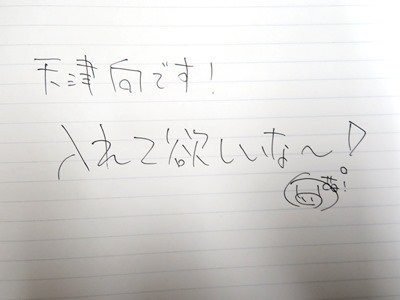 天津向です!
入れて欲しいな〜!